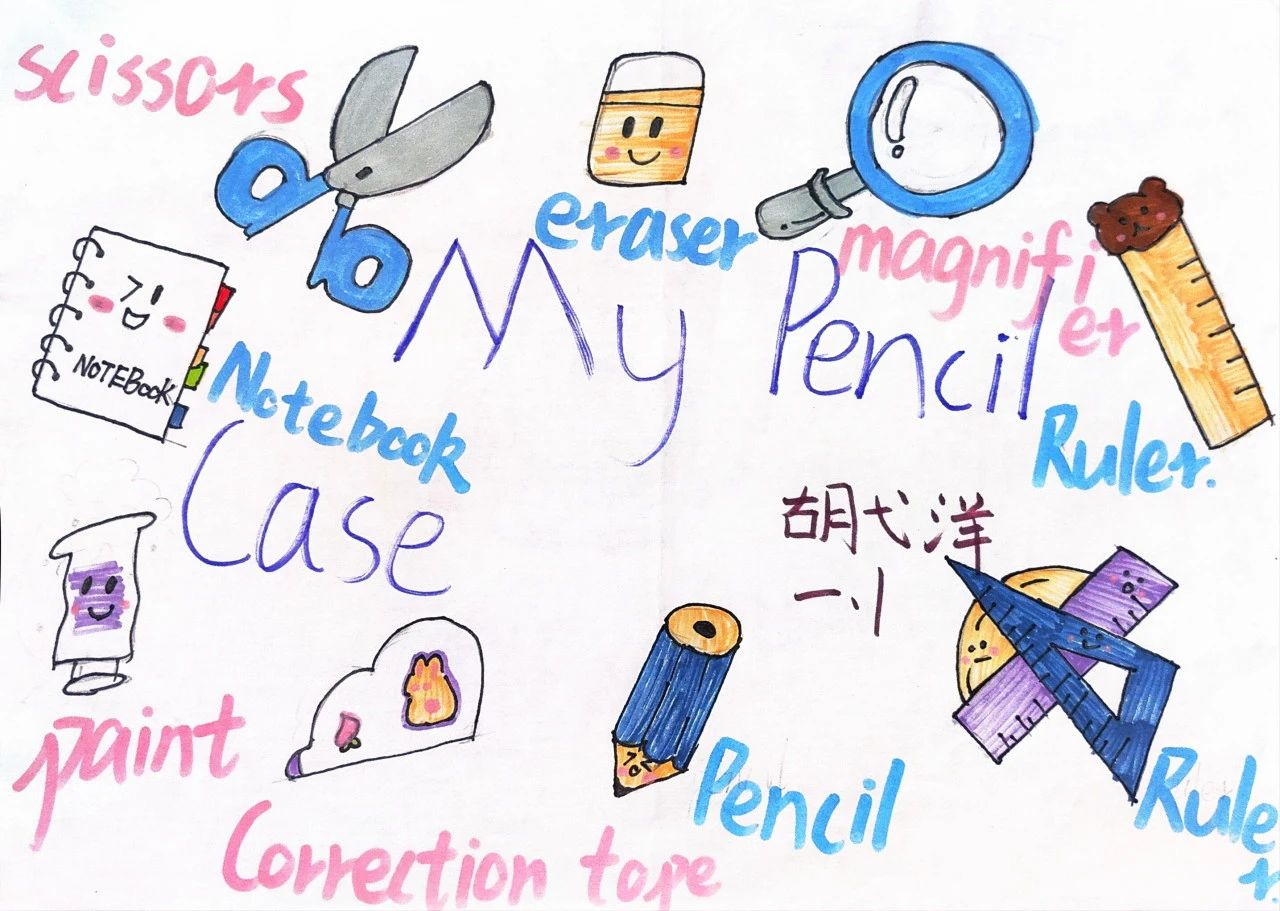 scissors
eraser
magnifi
er
My Pencil
Case
NOTEBook
Notebook
Ruler.
胡弋洋
一.1
paint
Correction tape
Pencil
Rule
r.